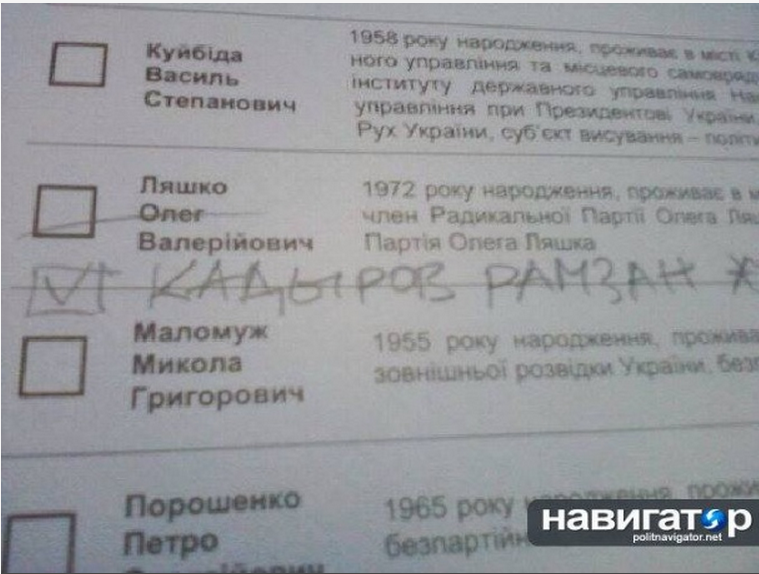 Куйбіда
Василь
Степанович
1958 року народження, проживає в місті К
ного управління та місцевого самовряд
інституту державного управління На
управління при Президентові України,
Рух України, суб'єкт висування – політи
Ляшко
Олег
Валерійович
1972 року народження, проживає в м
член Радикальної Партії Олега Ляш
Партія Олега Ляшка
КАДЫРОВ РАМЗАН
Маломуж
Микола
Григорович
1955 року народження, прожива
зовнішньої розвідки України, без
Порошенко
Петро
1965 року народження, прожи
безпартійн
навигатор
politnavigator.net